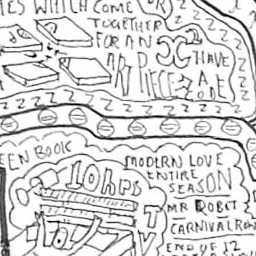 ES WHICH COME
TOGETHER
FOR AN
ART PIECE
HAVE
A
Z Z Z Z Z Z Z Z Z Z Z
EEN BOOK
10 hrs
TV
MODERN LOVE
ENTIRE
SEASON
MR ROBOT
CARNIVAL ROW
END OF 12